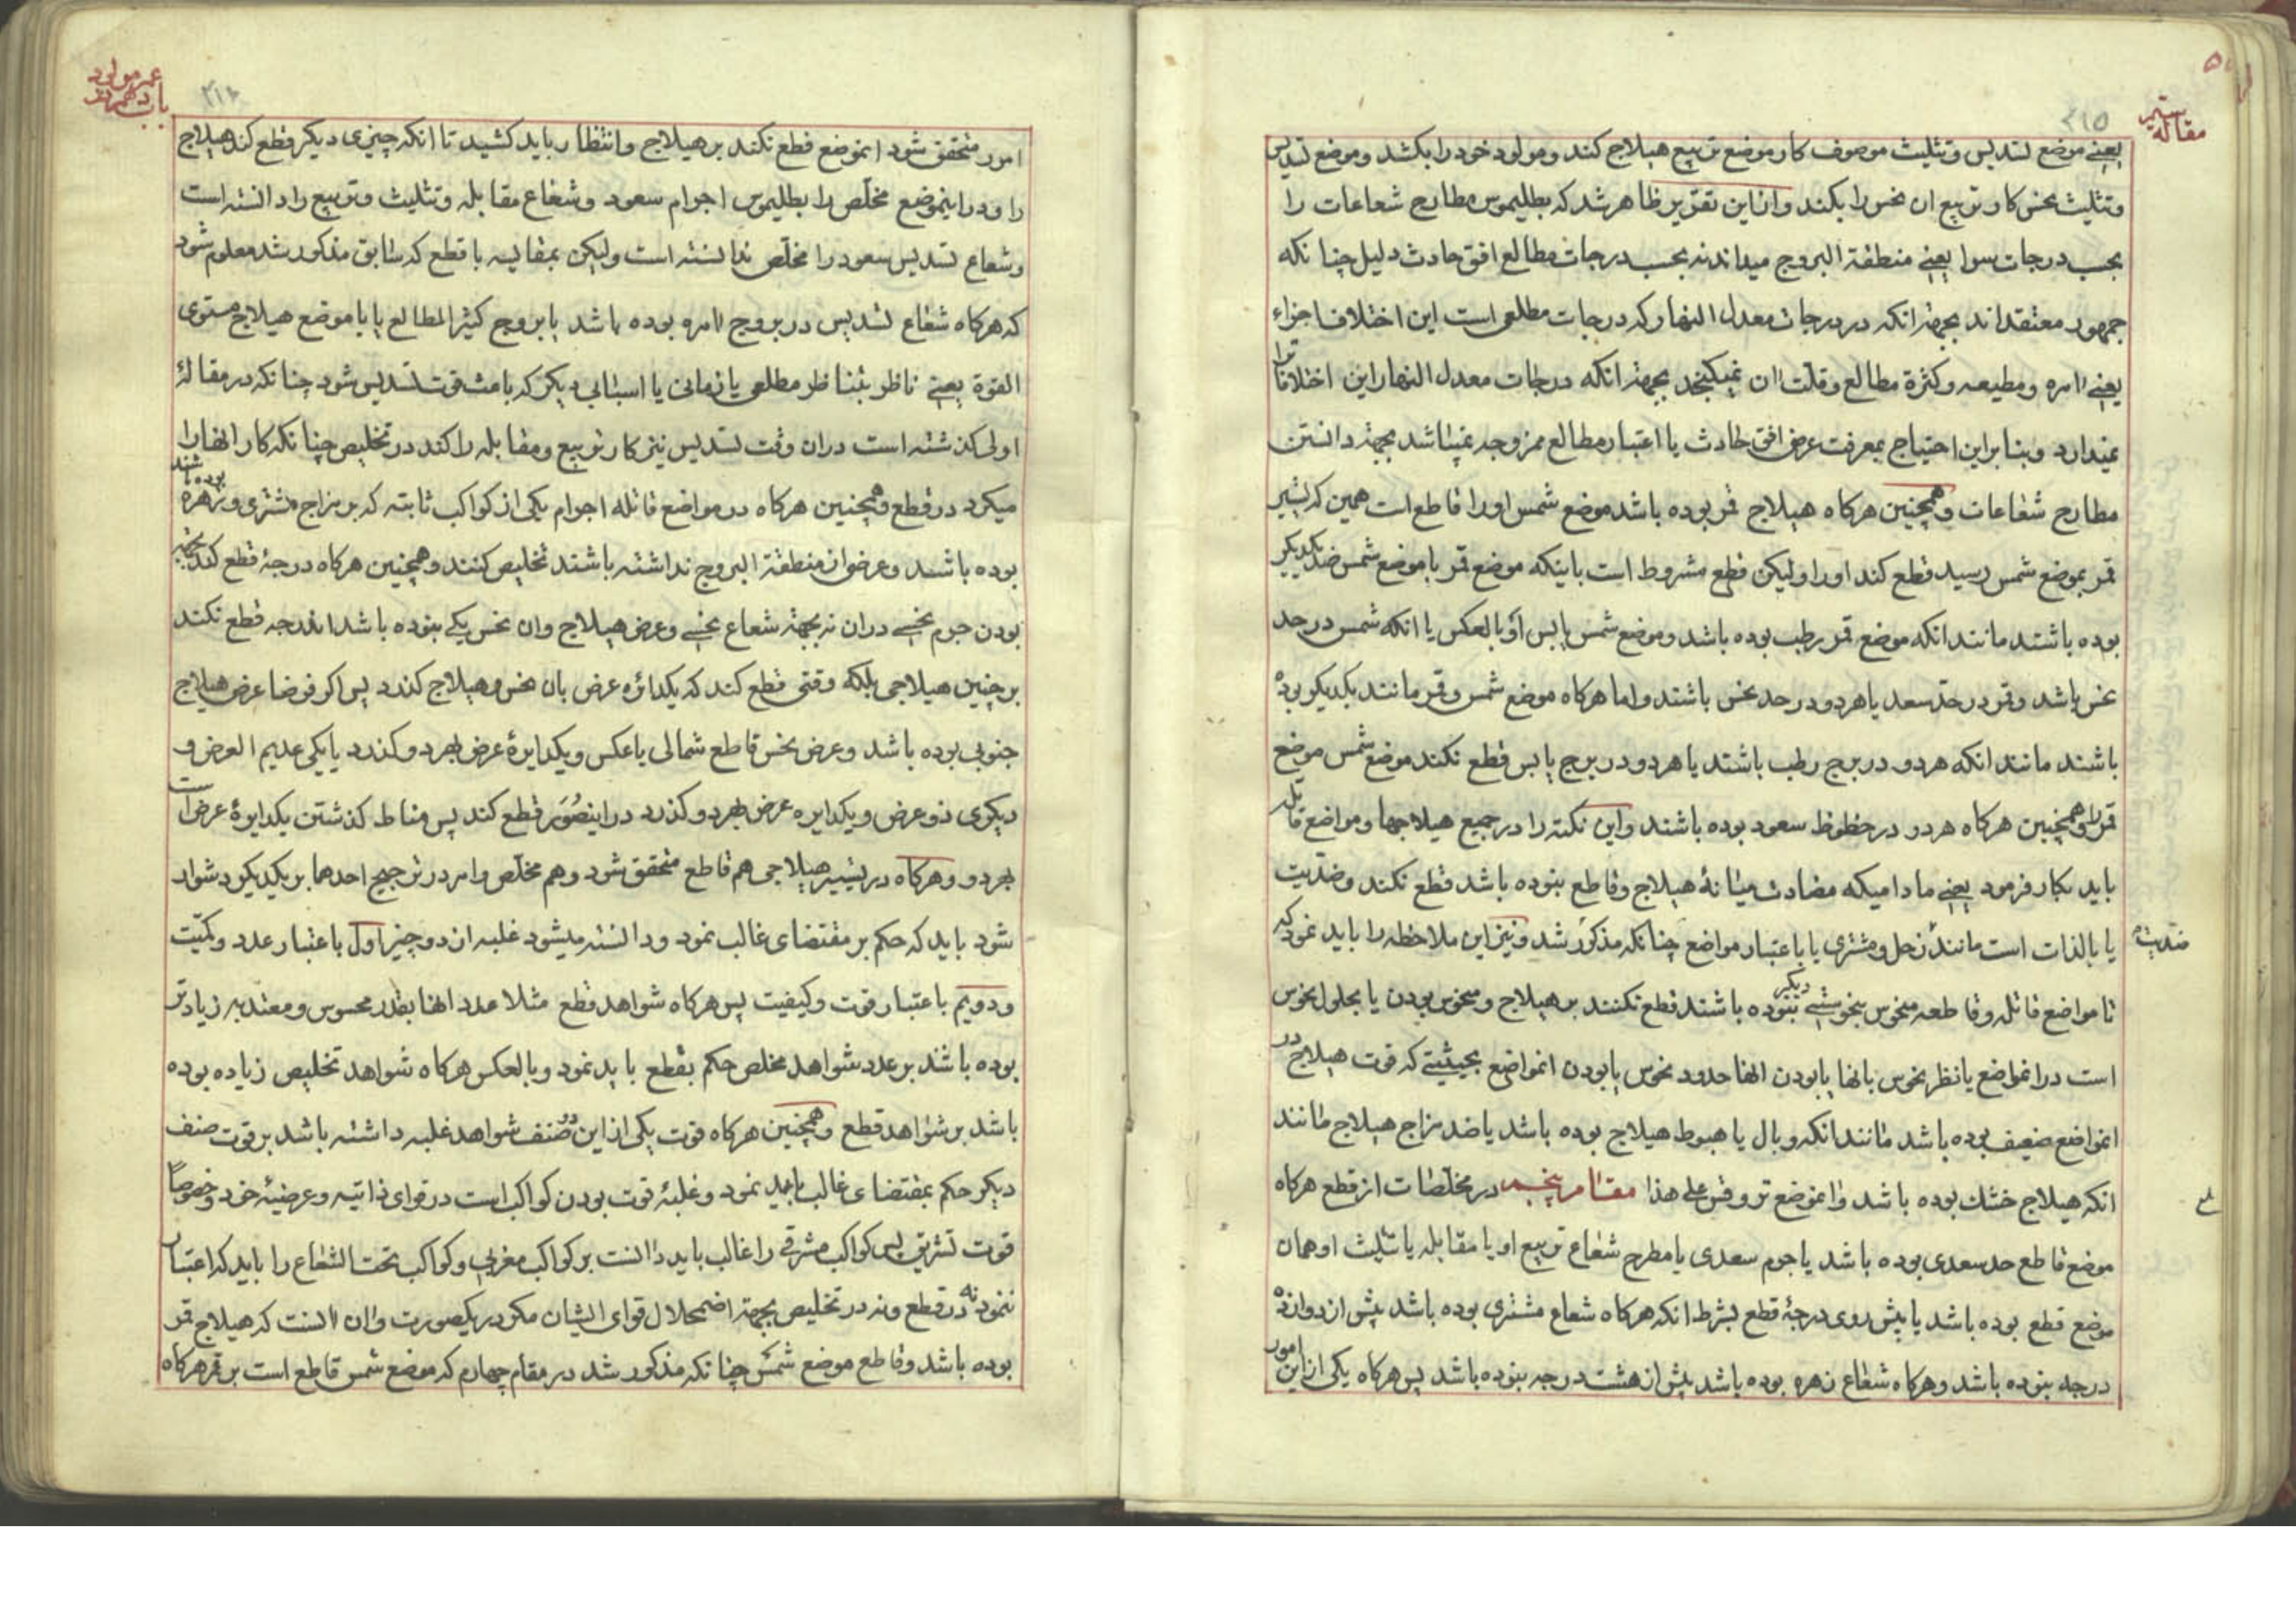 مقاله سیم
۲۱۵
یعنے موضع تسدیس وتثلیث موصوف کار موضع تربیع هیلاج کند ومولود خود را بکشد وموضع تسدیس
وتثلیث نحس کار تربیع ان نحس را بکند وازاین تقریر ظاهر شد که بطلیموس مطارح شعاعات را
بحسب درجات سوا یعنے منطقة البروج میداند نه بحسب درجات مطالع افق حادث دلیل چنانکه
جمهور معتقداند بجهة انکه در درجات معدل النهار که درجات مطلعی است این اختلاف اجزاء
یعنے امره ومطیعه وکثرة مطالع وقلت ان نمیکنجد بجهة انکه درجات معدل النهار این اختلافات را
نمیدارد وبنا براین احتیاج بمعرفت عرض افق حادث یا اعتبار مطالع ممزوجه نمیباشد بجهة دانستن
مطارح شعاعات وهمچنین هرکاه هیلاج قمر بوده باشد موضع شمس اورا قاطع است همین که تسییر
قمر بموضع شمس رسید قطع کند اورا ولیکن قطع مشروط است باینکه موضع قمر با موضع شمس ضد یکدیکر
بوده باشند مانند انکه موضع قمر رطب بوده باشد وموضع شمس یابس او بالعکس یا انکه شمس در حد
نحس باشد وقمر در حد سعد یا هردو در حد نحس باشند واما هرکاه موضع شمس وقمر مانند یکدیکر بوده
باشند مانند انکه هردو در برج رطب باشند یا هردو در برج یابس قطع نکند موضع شمس موضع
قمر را وهمچنین هرکاه هردو در حظوظ سعود بوده باشند واین نکته را در جمیع هیلاجها ومواضع قاتله
باید بکار فرمود یعنے مادامیکه مضادت میانهٔ هیلاج وقاطع بنوده باشد قطع نکند وضدیت
یا بالذات است مانند زحل ومشتری یا باعتبار مواضع چنانکه مذکور شد ونیز این ملاحظه را باید نمود که
ضدیت
تا مواضع قاتله وقاطعه منحوس بنحوستے دیکر بنوده باشند قطع نکنند بر هیلاج ومنحوس بودن یا بحلول نحوس
است درانمواضع یا نظر نحوس بانها یا بودن انها حدود نحوس یا بودن انمواضع بحیثیتے که قوت هیلاج در
انمواضع ضعیف بوده باشد مانند انکه وبال یا هبوط هیلاج بوده باشد یا ضد مزاج هیلاج مانند
انکه هیلاج خشك بوده باشد وانموضع تر وقس علی هذا مقام پنجم در مخلّصات از قطع هرکاه
موضع قاطع حد سعدی بوده باشد یا جرم سعدی یا مطرح شعاع تربیع او یا مقابله یا تثلیث او همان
موضع قطع بوده باشد یا پیش روی درجهٔ قطع بشرط انکه هرکاه شعاع مشتری بوده باشد پیش از دوازده
درجه بنوده باشد وهرکاه شعاع زهره بوده باشد پیش از هشت درجه بنوده باشد پس هرکاه یکی از این امور
عمر مولود
باب دهم
۲۱۶
امور متحقق شود انموضع قطع نکند بر هیلاج وانتظار باید کشید تا انکه چیزی دیکر قطع کند هیلاج
را ودر اینموضع مخلّص را بطلیموس اجرام سعود وشعاع مقابله وتثلیث وتربیع را دانسته است
وشعاع تسدیس سعود را مخلّص ندانسته است ولیکن بمقایسه با قطع که سابق مذکور شد معلوم شود
که هرکاه شعاع تسدیس در بروج امره بوده باشد یا بروج کثیر المطالع یا با موضع هیلاج مستوی
القوة یعنے ناظر بتناظر مطلعی یا زمانی یا اسبابی دیکر که باعث قوت تسدیس شود چنانکه در مقالهٔ
اولی کذشته است دران وقت تسدیس نیز کار تربیع ومقابله را کند در تخلیص چنانکه کار انها را
میکرد در قطع وهمچنین هرکاه در مواضع قاتله اجرام یکی از کواکب ثابته که بر مزاج مشتری وزهره بوده باشند
بوده باشند وعرض از منطقة البروج نداشته باشند تخلیص کنند وهمچنین هرکاه درجهٔ قطع کند بجهة
بودن جرم نحسے دران نه بجهة شعاع نحسے وعرض هیلاج وان نحس یکے بنوده باشد اندرجه قطع نکند
بر چنین هیلاجی بلکه وقتی قطع کند که یکدائره عرض بان نحس وهیلاج کذرد پس اکر فرضا عرض هیلاج
جنوبی بوده باشد وعرض نحس قاطع شمالی یا عکس ویکدایرهٔ عرض بهردو کذرد یا یکی عدیم العرض و
دیکری ذو عرض ویکدایره عرض بهردو کذرد در اینصُوَر قطع کند پس مناط کذشتن یکدایرهٔ عرض است
بهردو وهرکاه در تسییر هیلاجی هم قاطع متحقق شود وهم مخلّص وامر در ترجیح احدهما بر یکدیکر دشوار
شود باید که حکم بر مقتضای غالب نمود ودانسته میشود غلبه از دو چیز اول باعتبار عدد وکمّیت
ودویم باعتبار قوت وکیفیت پس هرکاه شواهد قطع مثلا عدد انها بقدر محسوس ومعتد به زیادتر
بوده باشند بر عدد شواهد مخلص حکم بقطع باید نمود وبالعکس هرکاه شواهد تخلیص زیاده بوده
باشد بر شواهد قطع وهمچنین هرکاه قوت یکی از این دو صنف شواهد غلبه داشته باشد بر قوت صنف
دیکر حکم بمقتضای غالب باید نمود وغلبهٔ قوت بودن کواکب است در قوای ذاتیه وعرضیهٔ خود وخصوصا
قوت تشریق پس کواکب مشرقے را غالب باید دانست بر کواکب مغربی وکواکب تحت الشعاع را باید که اعتبار
ننمود نه در قطع ونه در تخلیص بجهة اضمحلال قوای ایشان مکر در یکصورت وان انست که هیلاج قمر
بوده باشد وقاطع موضع شمس چنانکه مذکور شد در مقام چهارم که موضع شمس قاطع است بر قمر هرکاه